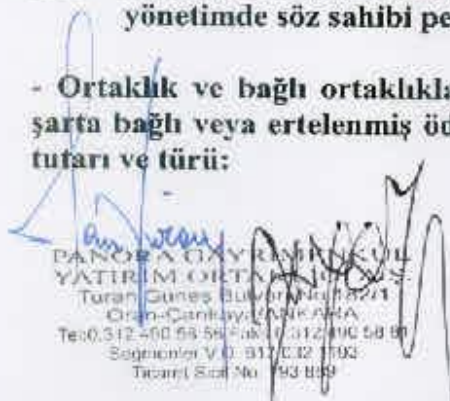 yönetimde söz sahibi pe
- Ortaklık ve bağlı ortaklıkla
şarta bağlı veya ertelenmiş öd
tutarı ve türü:
PANORA GAYRİMENKUL
YATIRIM ORTAKLIĞI A.Ş.
Turan Güneş Bulvarı No 182/1
Oran-Çankaya/ANKARA
Tel:0.312 490 58 56 Fax: 0.312 490 58 81
Seğmenler V.D.
Ticaret Sicil No